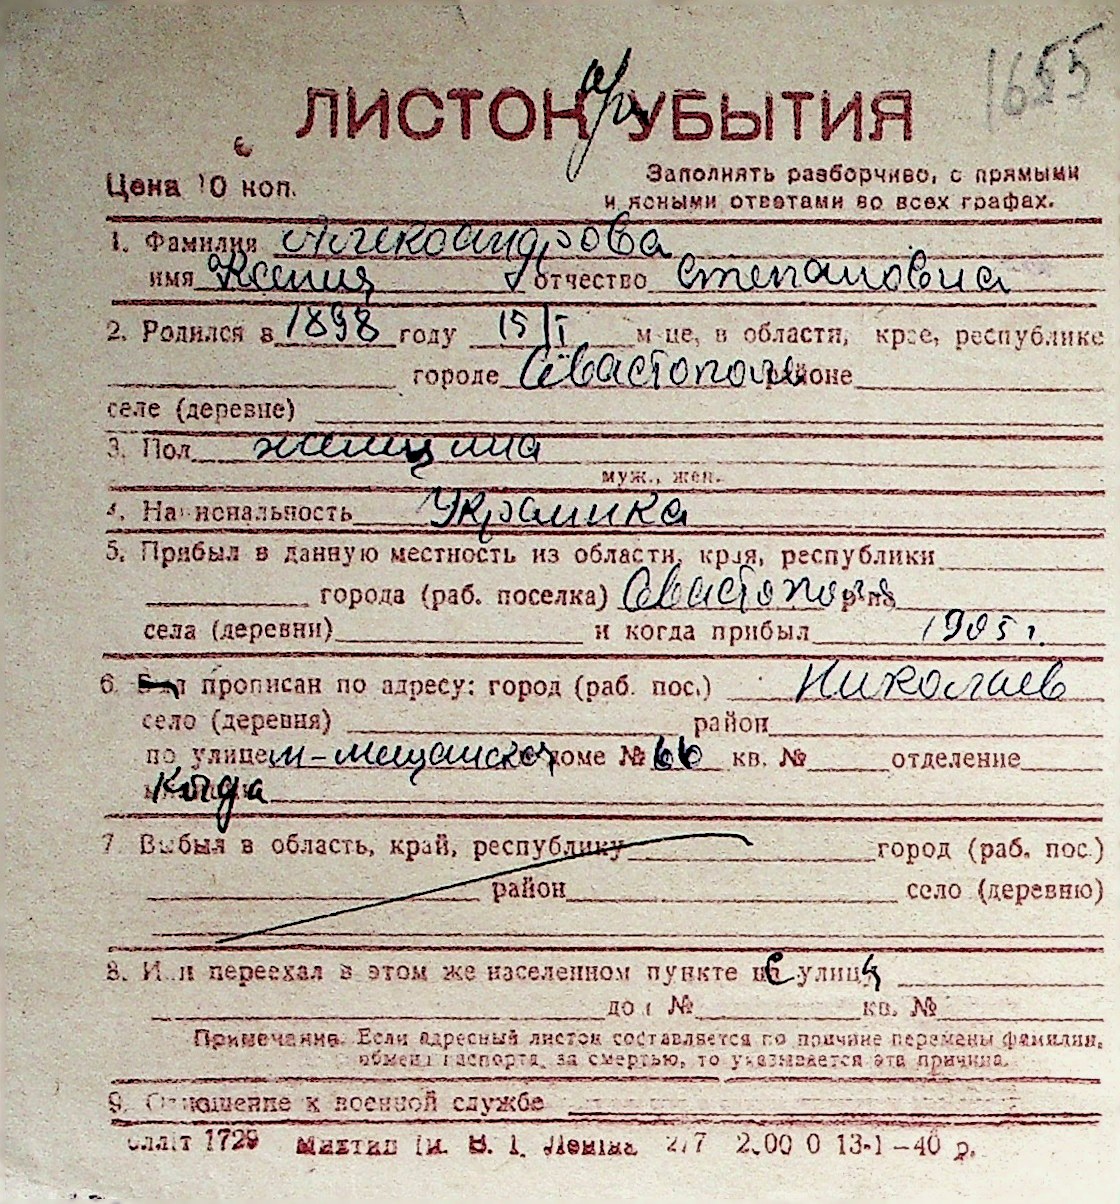 1655
ЛИСТОК УБЫТИЯ
Цена 10 коп.
Заполнять разборчиво, с прямыми
и ясными ответами во всех графах.
1. Фамилия Александрова
имя Ксения отчество Степановна
2. Родился в 1898 году 15/I м-це, в области, крае, республике
городе Севастополь районе
селе (деревне)
3. Пол женщина
муж., жен.
4. Национальность Украинка
5. Прибыл в данную местность из области, края, республики
города (раб. поселка) Севастополя р-на
села (деревни) и когда прибыл 1905 г.
6. Был прописан по адресу: город (раб. пос.) Николаев
село (деревня) район
по улице м-мещанской доме № 66 кв. № отделение
Когда
7. Выбыл в область, край, республику город (раб. пос.)
район село (деревню)
8. Или переехал в этом же населенном пункте с улицы
дом № кв. №
Примечание. Если адресный листок составляется по причине перемены фамилии,
обмена паспорта, за смертью, то указывается эта причина.
9. Отношение к военной службе
1729 В. І. Леніна 2/7 13-1—40 р.